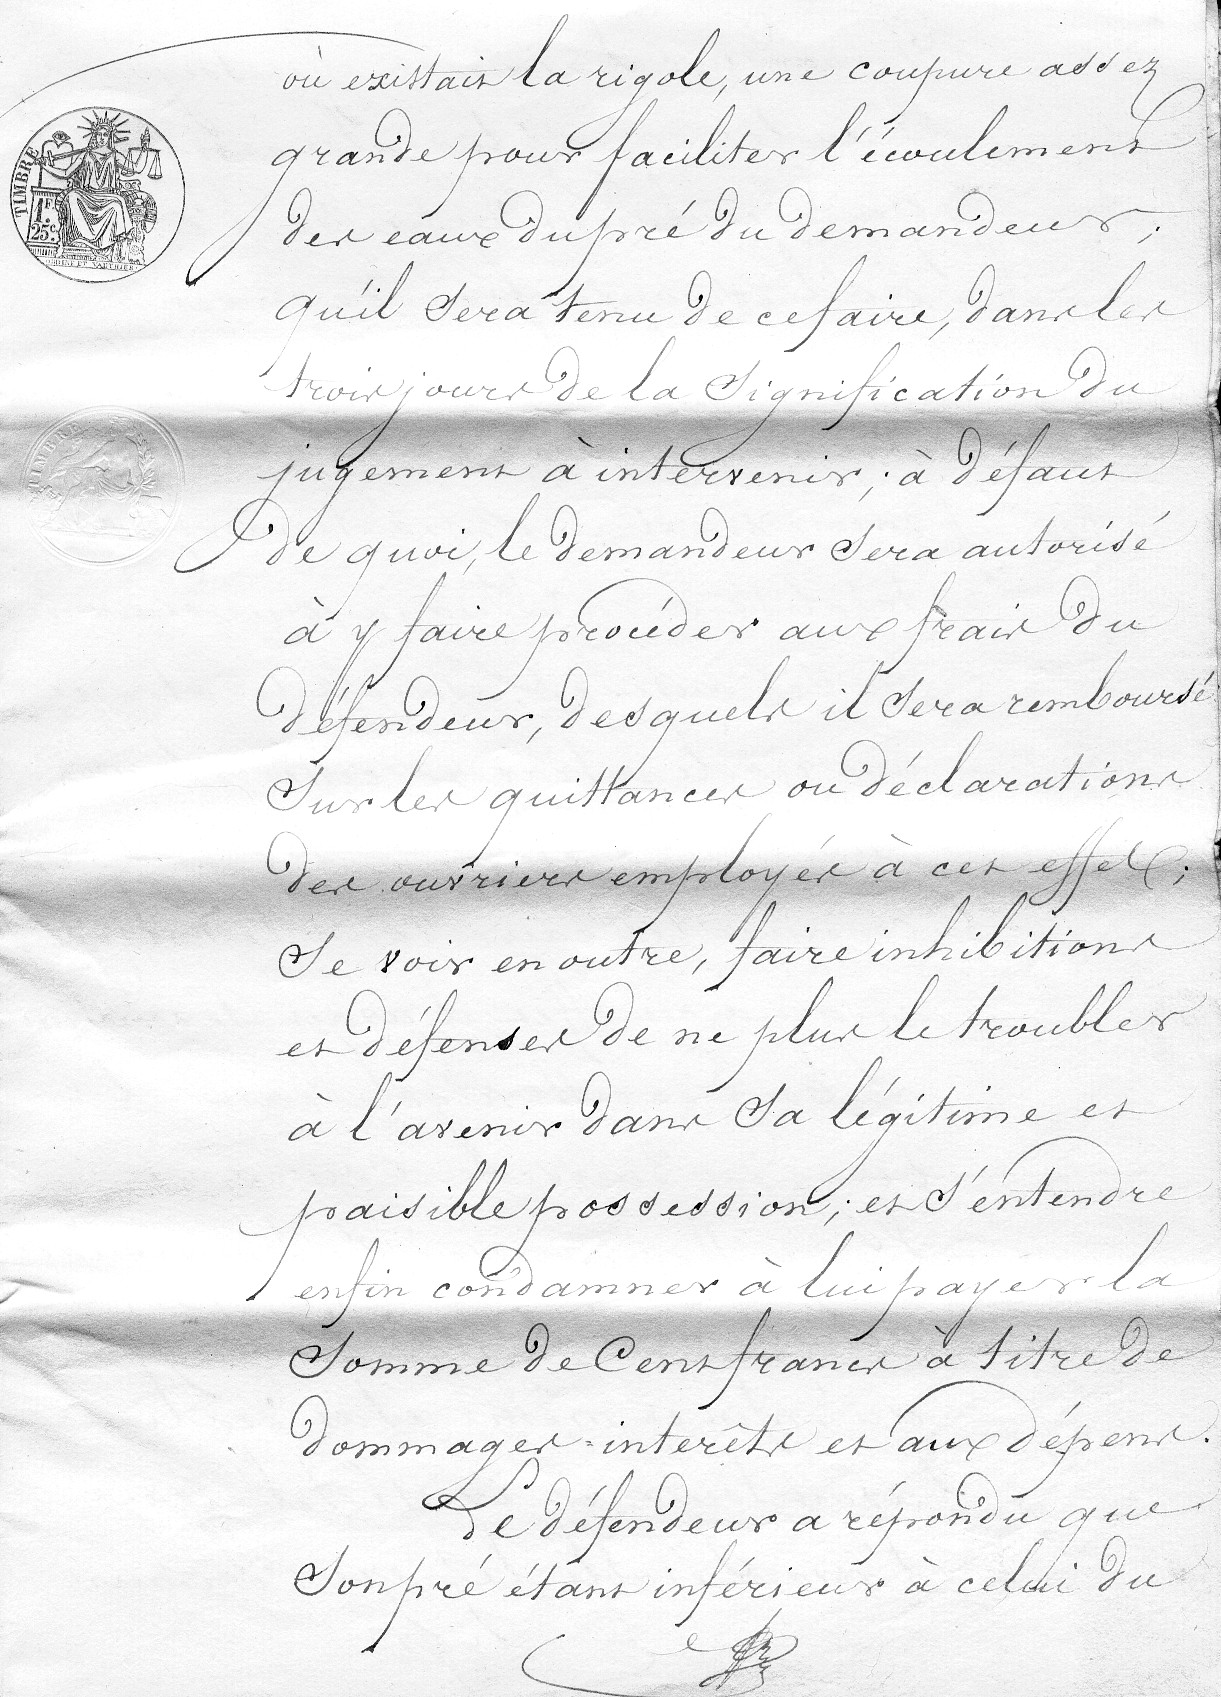 où existait la rigole, une coupure assez
grande pour faciliter l'écoulement
TIMBRE
1F.
25c.
des eaux du pré du demandeur ;
qu'il sera tenu de ce faire, dans les
trois jours de la signification du
jugement à intervenir ; à défaut
TIMBRE
de quoi, le demandeur sera autorisé
à y faire procéder aux frais du
défendeur, desquels il sera remboursé
sur les quittances ou déclarations
des ouvriers employés à cet effet ;
se voir en outre, faire inhibitions
et défenses de ne plus le troubler
à l'avenir dans sa légitime et
paisible possession ; et s'entendre
enfin condamner à lui payer la
somme de Cent francs à titre de
dommages=interêts et aux dépens.
Le défendeur a répondu que
son pré étant inférieur à celui du